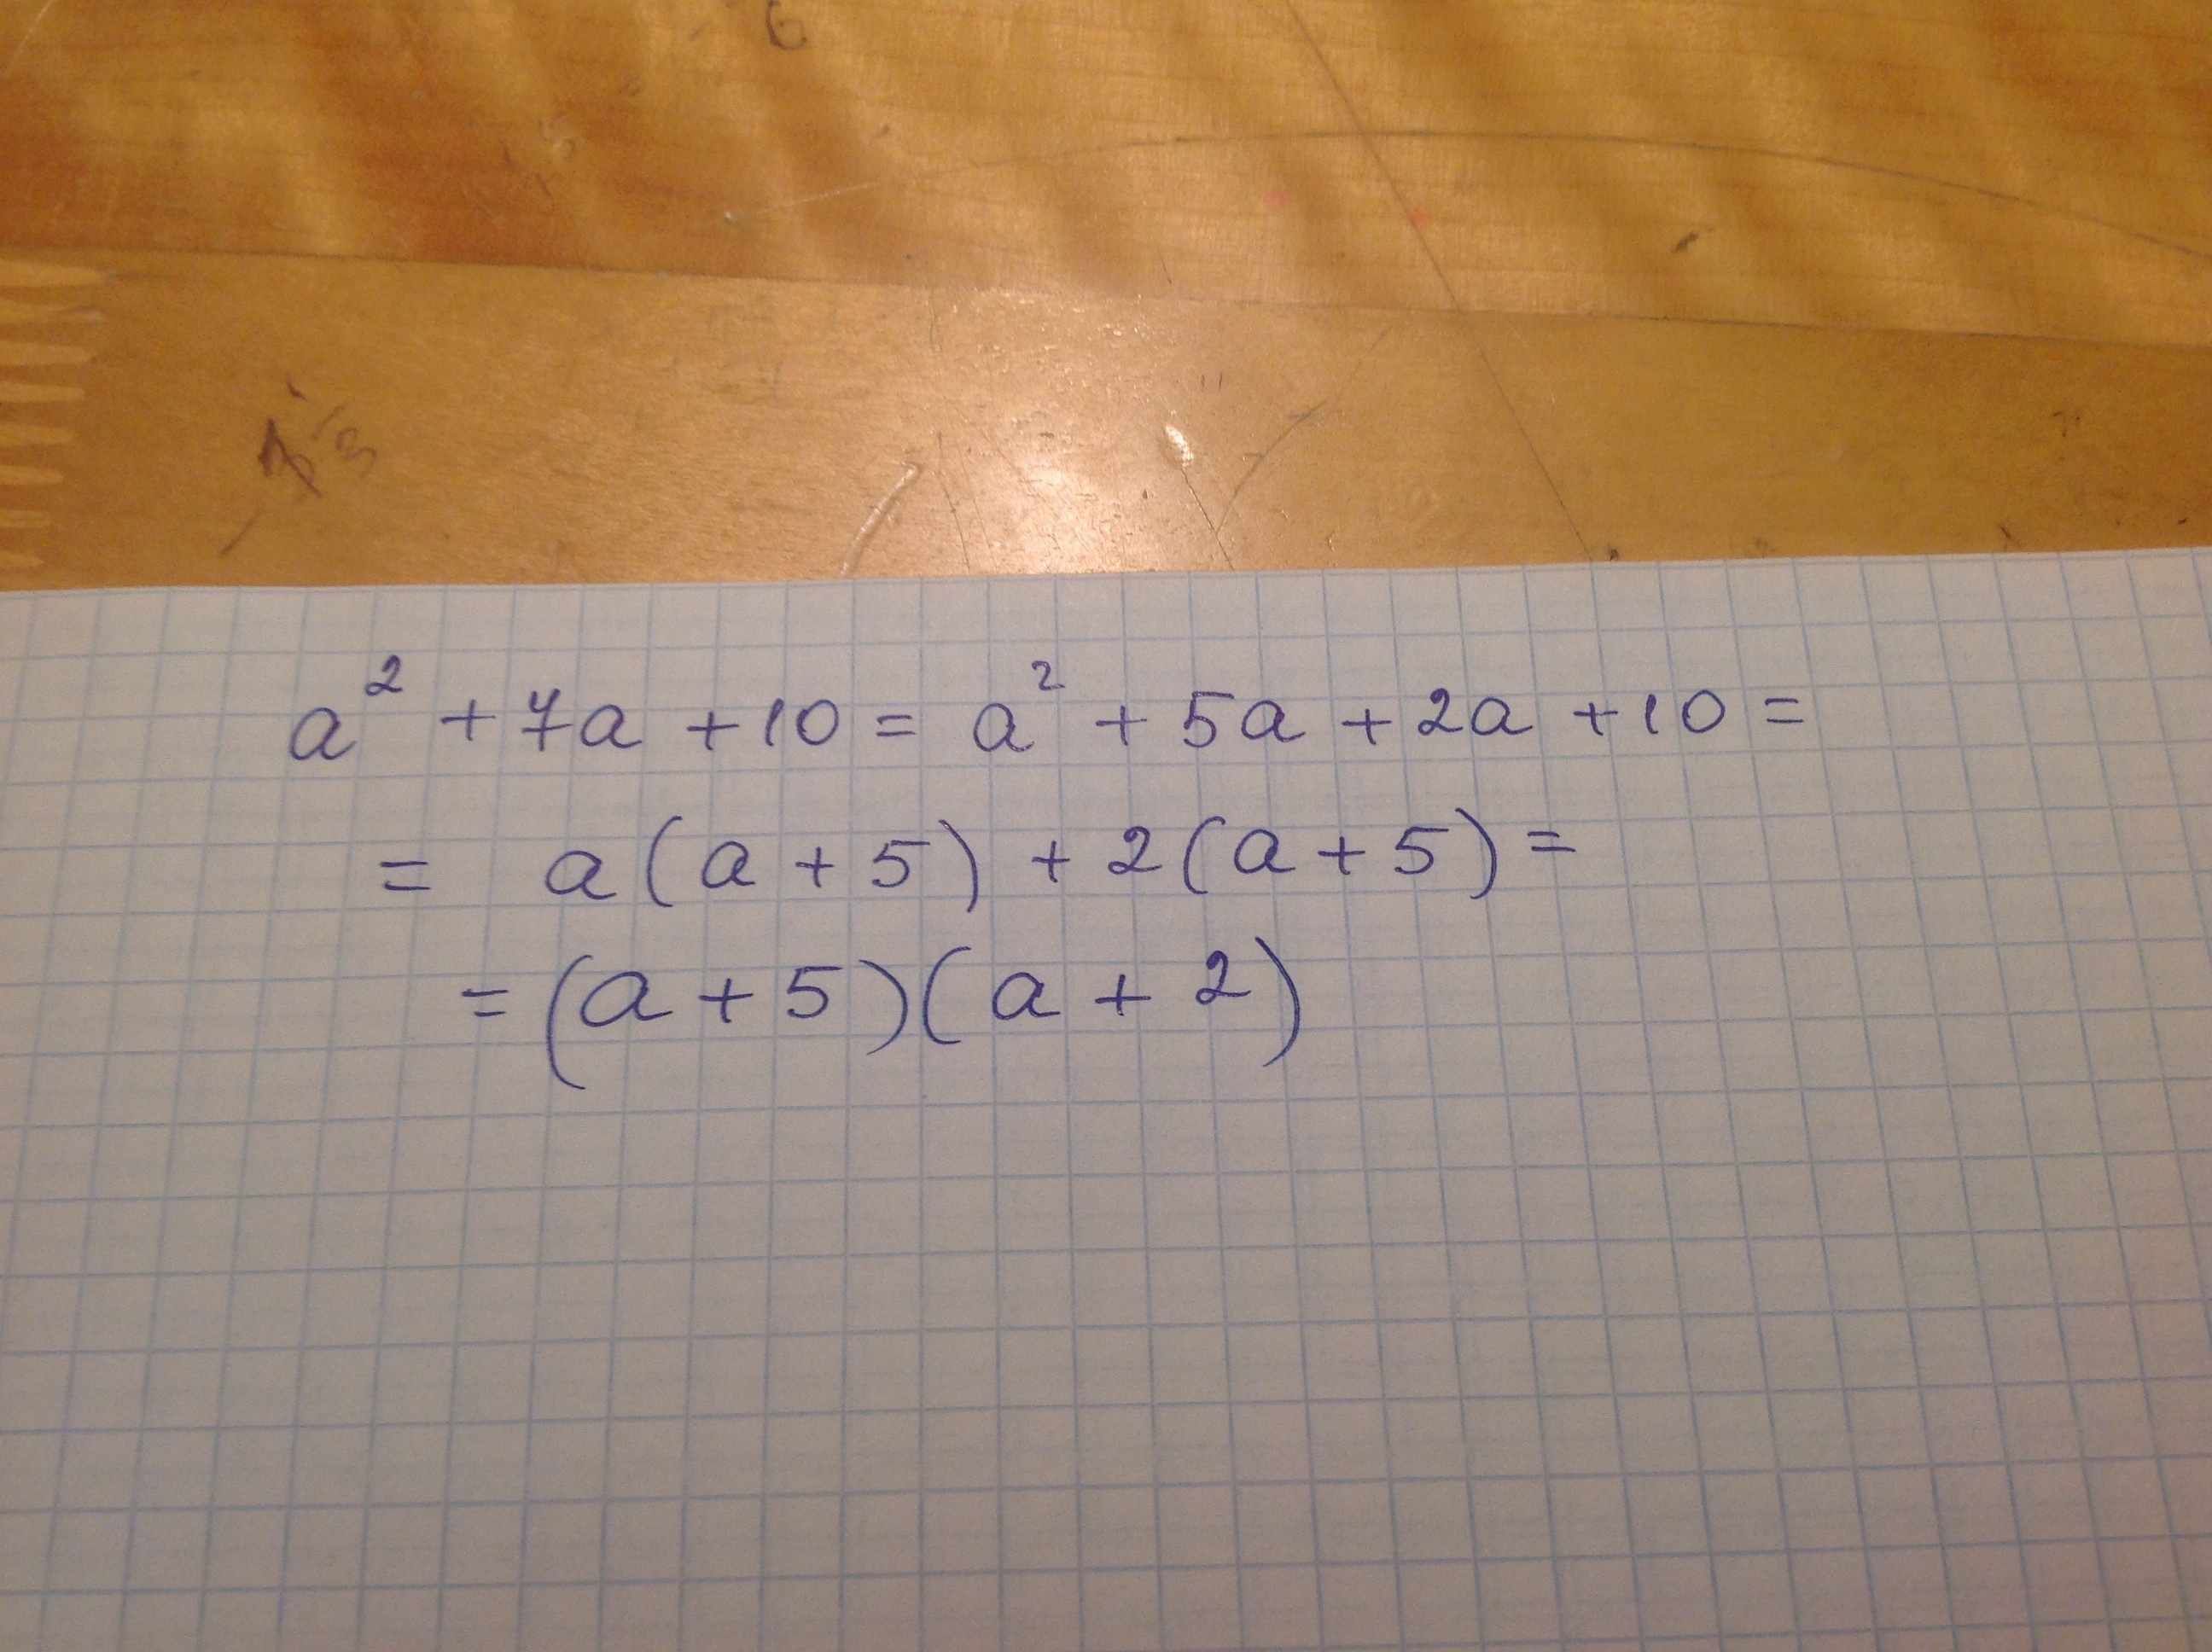 a² + 7a + 10 = a² + 5a + 2a + 10 =
= a(a + 5) + 2(a + 5) =
= (a + 5)(a + 2)